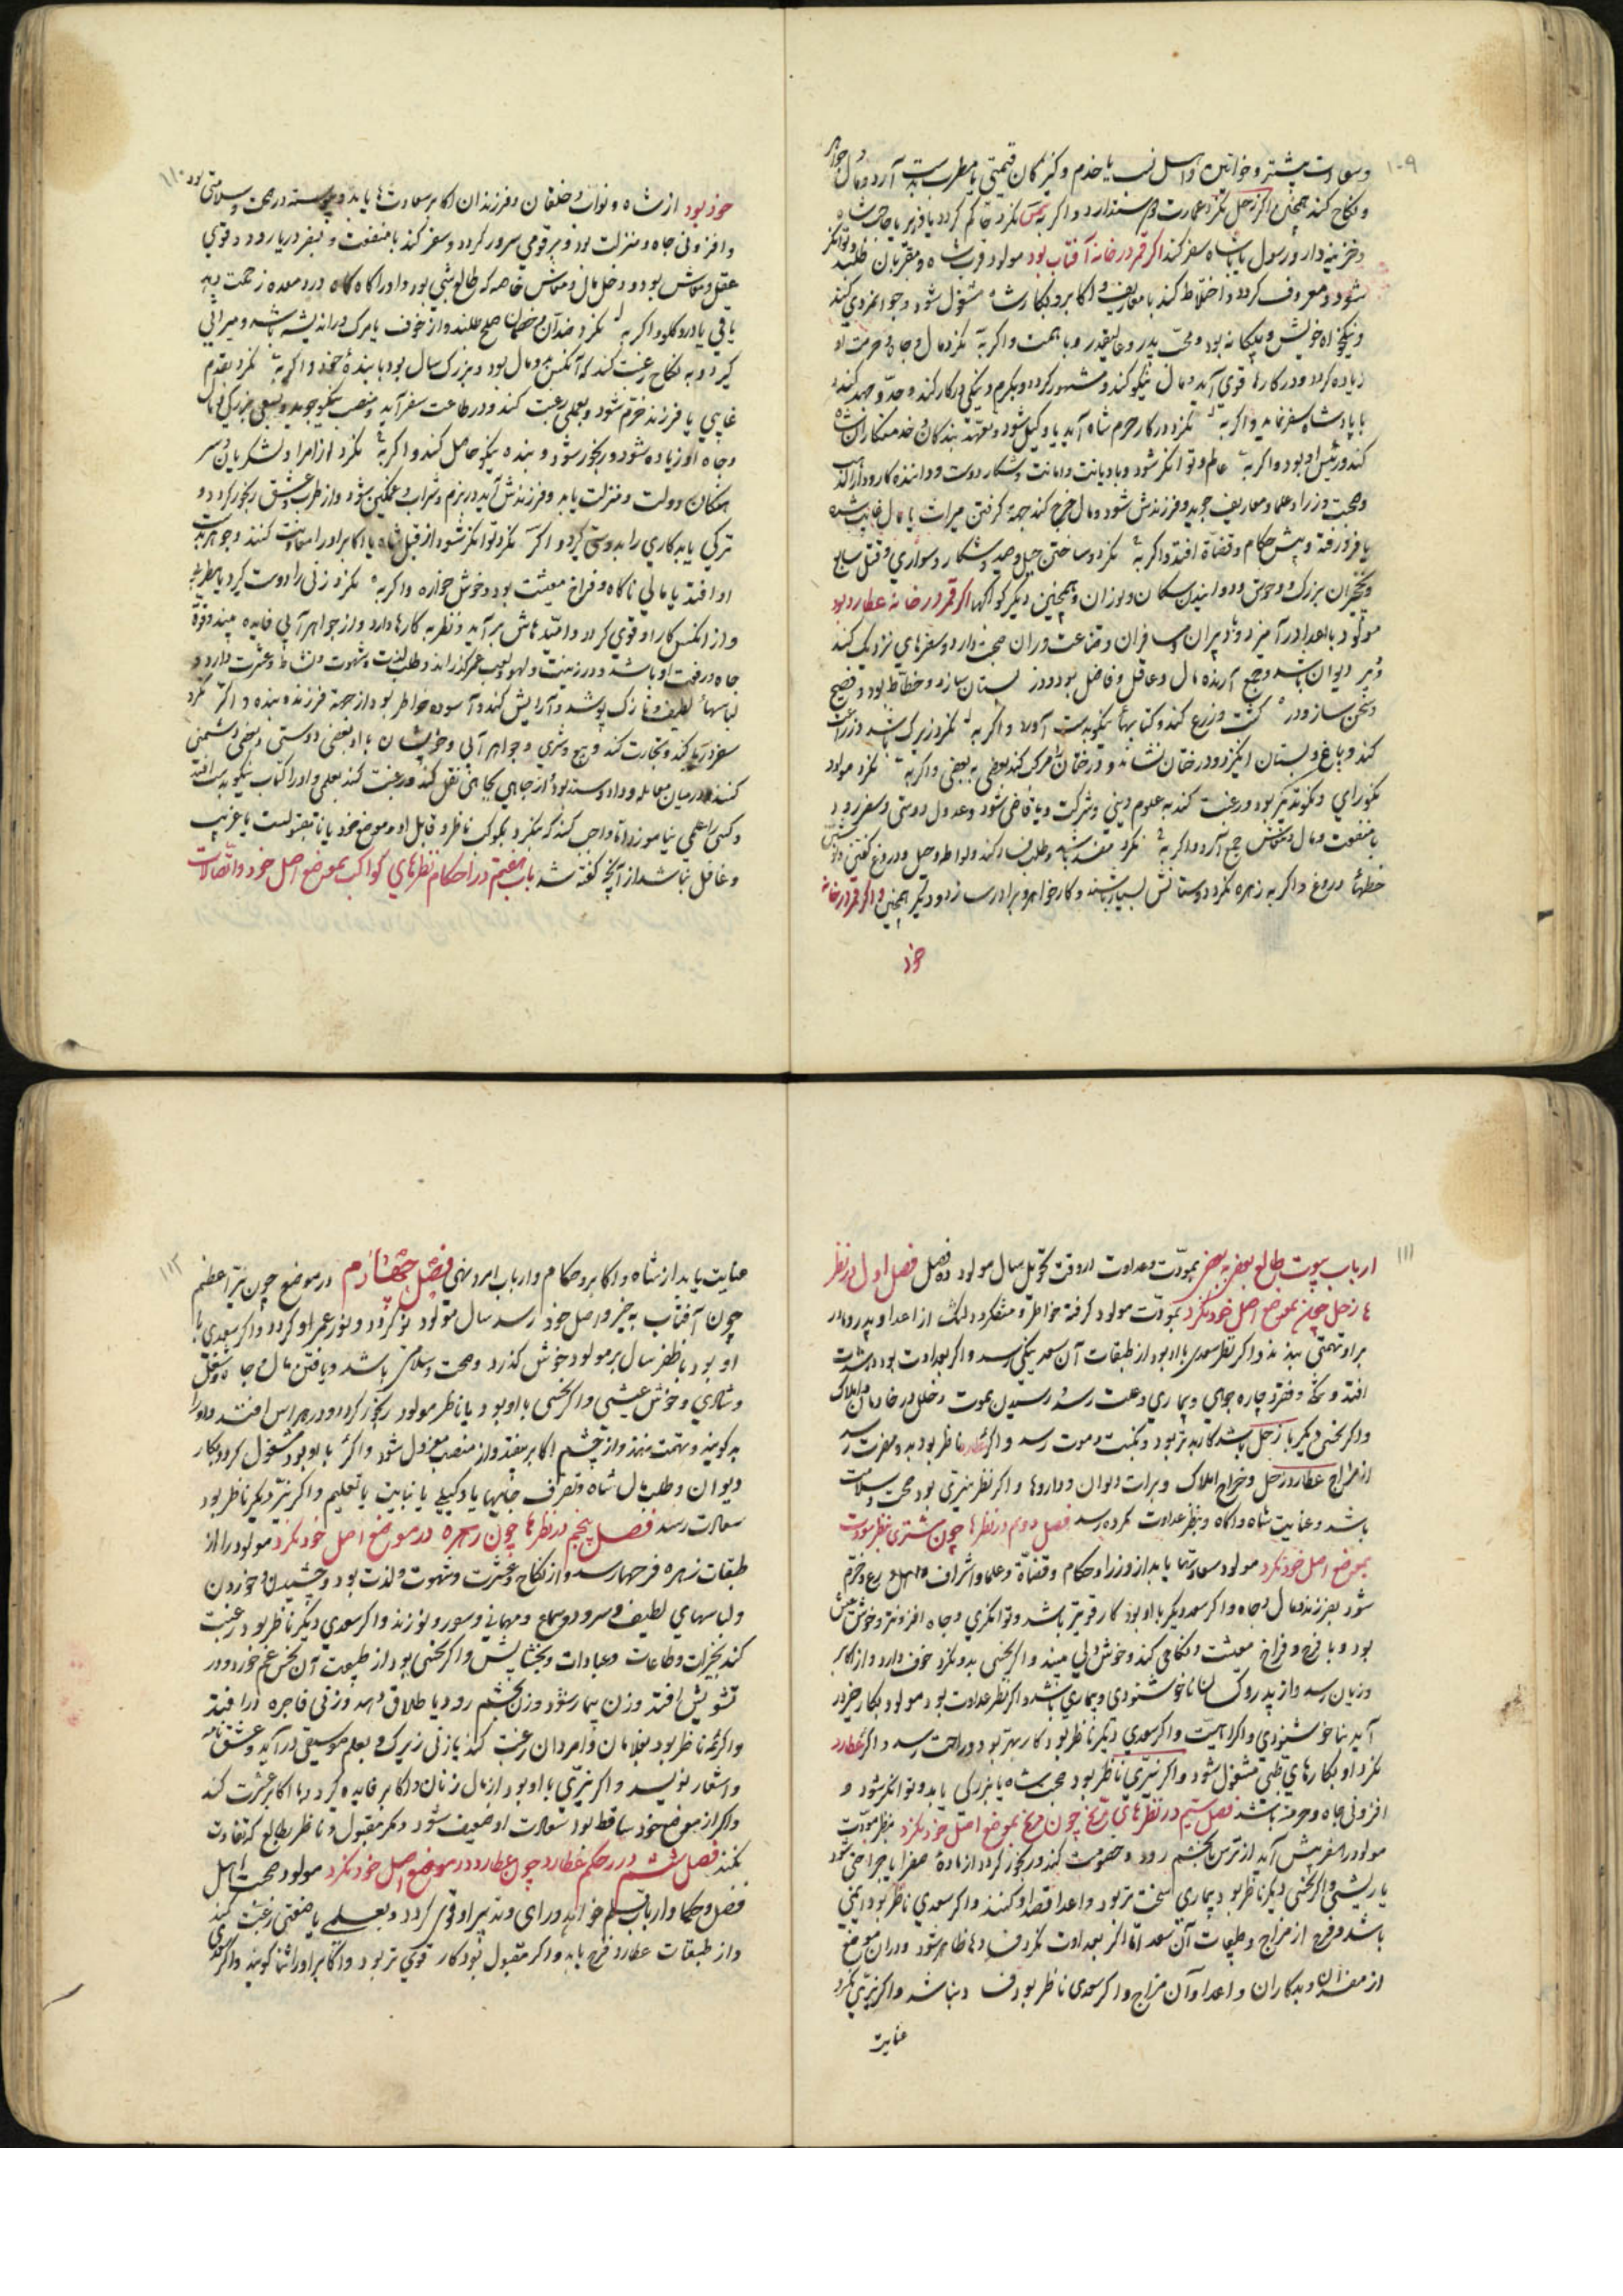 ۱۰۹
و نکاح کند همچنین اگر زحل نگرد عمارت و اگر به شمس نگرد حاکم گردد یا وزیر یا صاحب شاه
و خزینه دار و رسول پادشاه سفر کند اگر قمر در خانه آفتاب بود مولود قربت شاه و مقربان طلبد
شود و معروف گردد و اختلاط کند با معاریف و اکابر و بکار شاه مشغول شود و جوانمردی کند
و نیکخواه خویش و بیگانه بود و محب پدر و عالیقدر و با همت و اگر به نگرد مال و جاه و حرمت او
زیاده گردد و در کارها قوی آید و مال نیکو کند و مشهور گردد و بکرم و نیکی کار کند و جد و جهد کند
با پادشاه سفر نماید و اگر به نگرد در کار حرم شاه آید یا وکیل شود و تعهد بندگان و خدمتکاران شاه
کند و رئیس او بود و اگر به عالم و توانگر شود و با دیانت و امانت و شکار دوست و دواننده
و صحبت وزرا و علما و معاریف جوید و فرزندش شود و مال خرج کند جهة گرفتن میراث یا مال غایب شده
یا فرو رفته و پیش حکام و قضاة افتد و اگر به نگرد و ساختن حیل و صید و شکار و سواری و قتل سباع
و نخچیران بزرگ و وحوش و دوانیدن سگان و یوزان و همچنین دیگر کواکبها اگر قمر در خانه عطارد بود
مولود با اهل آمیزد و دبیران و مسافران و قناعت وران صحبت دارد و سفرهای نزدیک کند
دبیر دیوان باشد و جمع آرنده مال و عاقل و فاضل بود و در بستان سازد و خطاط بود و فصیح
و سخن ساز و در کشت و زرع کند و کتابها نیکو بدست آورد و اگر به نگرد زیرک باشد و زراعت
کند و باغ و بستان انگیزد و درختان نشاند و درختان مرکب کند بعضی به بعضی و اگر به نگرد مولود
نکورای و نکوتدبیر بود و رغبت کند به علوم دینی و شرکت و یا قاضی شود و عدول دوستی و سفر رود
با منفعت و مال و معاش جمع آرد و اگر به نگرد مفسد باشد و طلب فساد کند و لواطه و حیل و دروغ گفتن
خطهاء دروغ و اگر به زهره نگرد دوستانش بسیار باشند و کار خواهر و برادر سازد و دیگر همچنین و اگر قمر در خانه
خود
۱۱۰
خود بود از شاه و نواب و خلفان و فرزندان اکابر سعادت‌ها یابد و پیوسته در صحت و سلامتی بود
و افزونی جاه و منزلت بود و بر قومی سرور گردد و سفر کند با منفعت و بسفر دریا رود و قوی
عقل و معاش بود و دخل مال و معاش خاصه که طالع شبی بود و او را گاه گاه درد معده زحمت دهد
یا قی یا درد گلو و اگر به نگرد ضد آن و خصمان صلح طلبند و از خوف یا مرگ در اندیشه باشد و میراثی
گیرد و به نکاح رغبت کند که آنکس مال بود و بزرگ سال بود یا بنده خود و اگر به نگرد بقدوم
غایبی یا فرزند خرم شود و بعملی رغبت کند و در طاعت سفر آید و منصب نیکو جوید و بسعی بزرگی مال
و جاه او زیاده شود و رنجور شود و بنده نیکو حاصل کند و اگر به نگرد از امرا و لشکریان و سر
هنگان دولت و منزلت یابد و فرزندش آید در بزم و شراب و غمگین شود و از طرب و عشق رنجور گردد و
ترکی یا بدکاری را بدوستی گیرد و اگر نگرد توانگر شود از قبل شاه یا اکابر او را معاونت کنند و جوهر بدست
او افتد یا مالی ناگاه و فراخ معیشت بود و خوش خواره و اگر به نگرد زنی را دوست گیرد
و از آنکس کار او قوی گردد و امید هاش برآید و نظر به کارها دارد و از جواهر آبی فایده بیند و قوة
جاه و رفعت او باشد و در زینت و لهو و لعب عمر گذراند و طلب لذت و شهوت و نشاط و عشرت دارد و
لباسهاء لطیف و نازک پوشد و آرایش کند و آسوده خاطر بود از جهة فرزند و بنده و اگر نگرد
سفر دریا کند و تجارت کند و بیع و شری و جواهر آبی و خویشان با او بعضی دوستی و بعضی دشمنی
کنند و در میان معامله و داد و ستد بود از جایی بجایی نقل کند و رغبت کند بعلمی و او را کتاب نیکو بدست افتد
و کسی را علمی بیاموزد اما واجب کند که بنگرد بکوکب ناظر و قابل او و موضع خود یا نا مقبولست یا غریب
و غافل نباشد از آنچه گفته شد باب هفتم در احکام نظرهای کواکب بموضع اصل خود و اتصالات
۱۱۱
ارباب بیوت طالع بعضی به بعضی بمودت و عداوت در وقت تحویل سال مولود ده فصل فصل اول در نظر
ها زحل چون بموضع اصل خود نگرد بمودت مولود گرفته خاطر و متفکر از اعدا و پدر و مادر
برو تهمتی نهند و اگر نظر سعدی با او بود از طبقات آن سعد نیکی رسد و اگر بعداوت بود
افتد و شکه و فقر و چاره جویی و بیماری و علت رسد و رسیدن بموت و خلل در خانمان و املاک
و اگر نحسی دیگر با زحل باشد کار بتر بود و نکبت و موت رسد و اگر عطارد ناظر بود بدو مضرت رسد
از مزاج عطارد و زحل و خراج املاک و برات دیوان و داروها و اگر نظر نیری بود صحت و سلامت
باشد و عنایت شاه و اکابر و بنظر عداوت مکروه رسد فصل دوم در نظرها چون مشتری بنظر مودت
بموضع اصل خود نگرد مولود سعادتها یابد از وزرا و حکام و قضاة و علما و اشراف و خرم
شود بفرزند و مال و جاه و اگر سعد دیگر با او بود کار قویتر باشد و توانگری و جاه افزونتر و خوش عیش
بود و با فرح و فراخ معیشت و نکاحی کند و خوش دلی بیند و اگر نحسی بدو نگرد خوف دارد و از اکابر
و زیان رسد و از پدر و کسان ناخوشنودی و بیماری باشد و اگر نظر عداوت بود مولود بکار خیر در
آید بناخوشنودی و اکراهیت و اگر سعدی دیگر ناظر بود کار بهتر بود و راحت رسد و اگر عطارد
نگرد او بکارهای طبی مشغول شود و اگر نیری ناظر بود صحبت شاه یا بزرگی یابد و توانگر شود و
افزونی جاه و حرمت باشد فصل سیم در نظرهای مریخ چون مریخ بموضع اصل خود نگرد بنظر مودت
مولود را سفر پیش آید از ترس بخشم رود و خصومت کند و رنجور گردد از مادة صفرا یا جراحتی شود
یا ریشی و اگر نحسی دیگر ناظر بود بیماری سخت تر بود و اعدا قصد او کنند و اگر سعدی ناظر بود ایمنی
باشد و فرح از مزاج و طبیعت آن سعد اما اگر بعداوت نگرد فسادها ظاهر شود و در آن موضع
از مفسدان و بدکاران و اعدا و آن مزاج و اگر سعدی ناظر بود فساد نباشد و اگر نیری نگرد
عنایت
۱۱۲
عنایت یابد از شاه و اکابر و حکام و ارباب امر و نهی فصل چهارم در موضع چون نیر اعظم
چون آفتاب به جز و اصل خود رسد سال مولود نو گردد و نور عمر او گردد و اگر سعدی با
او بود یا ناظر سال بر مولود خوش گذرد و صحت و سلامتی باشد و یافتن مال و جاه و شغل
و شادی و خوش عیشی و اگر نحسی با او بود یا ناظر مولود رنجور گردد و در هراس افتد و او را
بد گویند و تهمت نهند و از چشم اکابر بیفتد و از منصب معزول شود و اگر با او بود مشغول گردد بکار
دیوان و طلب مال شاه و تصرف یا وکیلی یا نیابت یا تعلیم و اگر نیر دیگر ناظر بود
سعادت رسد فصل پنجم در نظرها چون زهره در موضع اصل خود نگرد مولود را از
طبقات زهره فرحها رسد و از نکاح و عشرت و شهوت و لذت بود و چشیدن و خوردن
و لباسهای لطیف و سرود و سماع و مهمانی و سور و نو زند و اگر سعدی دیگر ناظر بود رغبت
کند بخیرات و طاعات و عبادات و بخشایش و اگر نحسی بود از طبیعت آن نحس غم خورد و در
تشویش افتد و زن بیمار شود و زن بخشم رود یا طلاق دهد و زنی فاجره در افتد
و اگر ناظر بود بغلامان و امردان رغبت کند یا زنی زیرک و بعلم موسیقی در آید و عشق نامه
و اشعار نویسد و اگر نیری با او بود از مال زنان و اکابر فایده گیرد و با اکابر عشرت کند
و اگر از موضع خود ساقط بود سعادت او ضعیف شود و مگر مقبول و ناظر بطالع که تفاوت
نکند فصل ششم در حکم عطارد چون عطارد در موضع اصل خود نگرد مولود صحبت اهل
فضل و حکما و ارباب قلم خواهد و رای و تدبیر او قوی گردد و بعلمی یا صنعتی رغبت کند
و از طبقات عطارد فرح یابد و اگر مقبول بود کار قوی تر بود و اکابر او را ثنا گویند و اگر سعدی